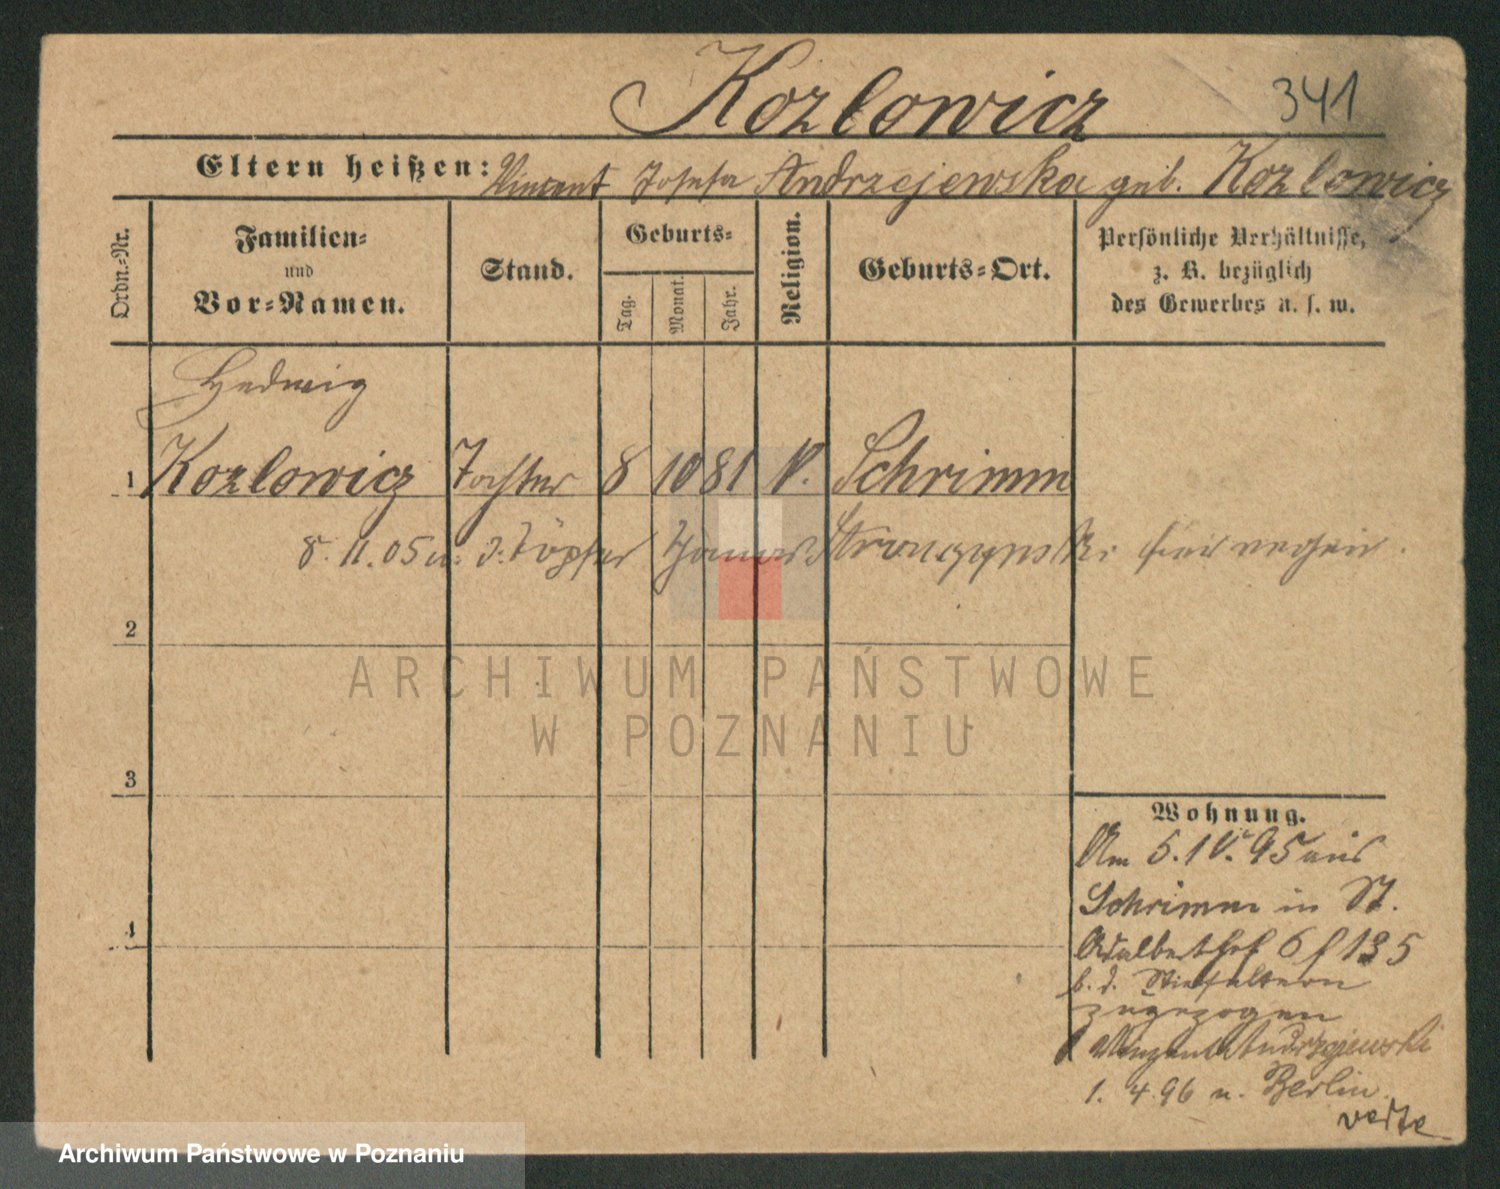 Kozlowicz 341
Eltern heißen: Vincent Josefa Andrzejewska geb. Kozlowicz
Ordn.-Nr.
Familien-
und
Vor-Namen.
Stand.
Geburts-
Tag.
Monat.
Jahr.
Religion.
Geburts-Ort.
Persönliche Verhältnisse,
z. B. bezüglich
des Gewerbes u. s. w.
Hedwig
1 Kozlowicz Tochter 8 10 81 Schrimm
8. 11. 05 d. Töpfer
2
3
4
Wohnung.
Am 5. IV. 95 aus
Schrimm in St.
Adalbertstr 6 f 135
b. d. Stiefeltern
zugezogen
Vinzent Andrzejewski
1. 4. 96 n. Berlin
verte
ARCHIWUM PAŃSTWOWE
W POZNANIU
Archiwum Państwowe w Poznaniu